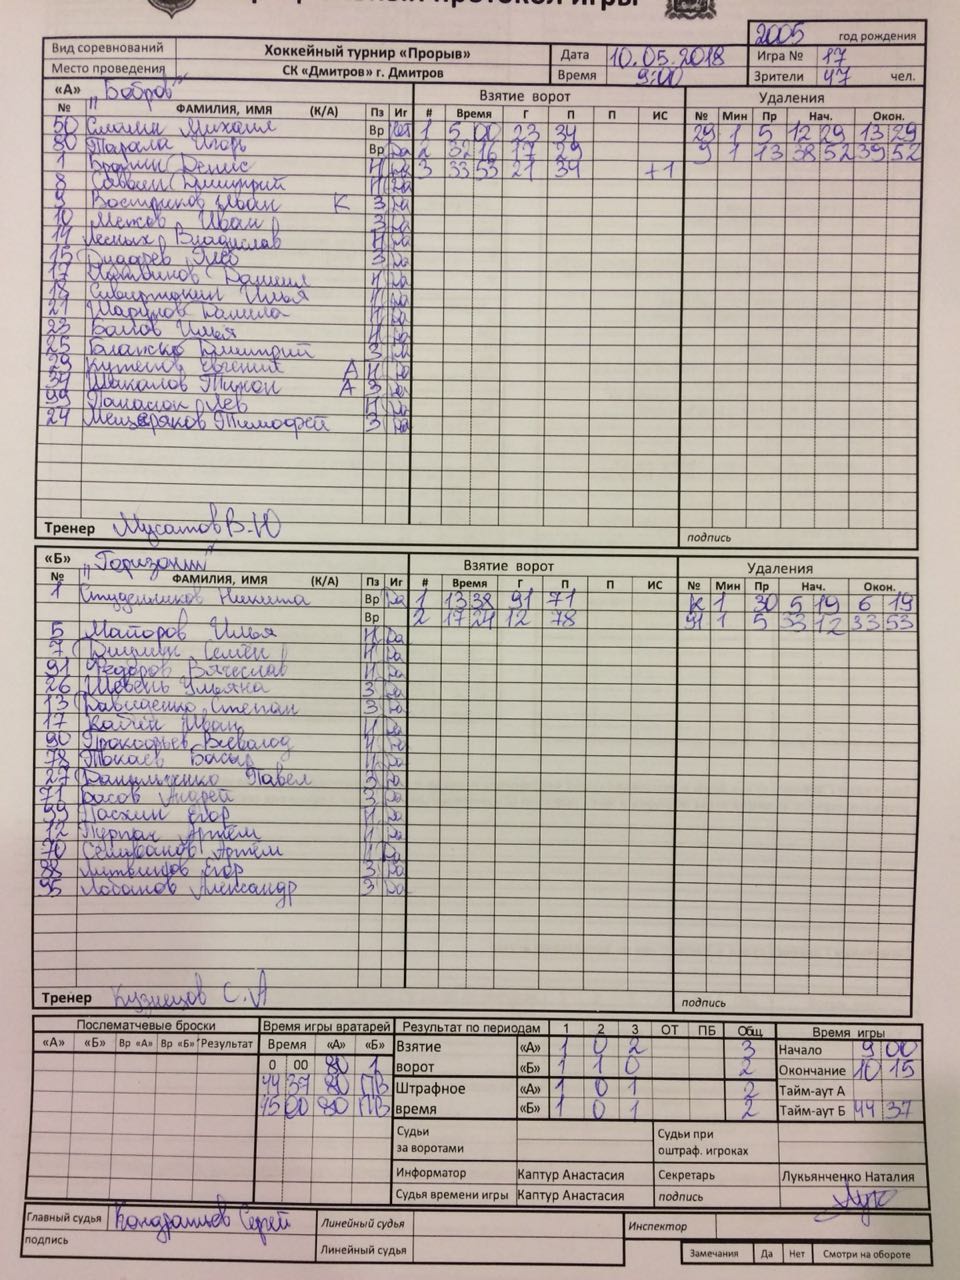 2005 год рождения
Вид соревнований Хоккейный турнир «Прорыв» Дата 10.05.2018 Игра № 17
Место проведения СК «Дмитров» г. Дмитров Время 9:00 Зрители 47 чел.
«А» "Бобров" Взятие ворот Удаления
№ ФАМИЛИЯ, ИМЯ (К/А) Пз Иг # Время Г П П ИС № Мин Пр Нач. Окон.
50 Михаил Вр 1 5 00 23 34 29 1 5 12 29 13 29
80 Тарала Игорь Вр Да 2 32 16 17 29 9 1 13 38 52 39 52
1 Денис Н Да 3 33 53 21 34 +1
8 Саввин Дмитрий Н Да
9 Востриков Иван К З Да
10 Межов Иван З Да
Лесных Владислав Н Да
15 З Да
17 Даниил Н Да
18 Илья Н Да
21 Шарипов Данила Н Да
23 Илья Н Да
25 Дмитрий З Да
29 Евгений А Н Да
34 Шакалов Тихон А З Да
99 Панасюк Лев Н Да
24 Мещеряков Тимофей З Да
Тренер Мусатов В.Ю
подпись
«Б» "Горизонт" Взятие ворот Удаления
№ ФАМИЛИЯ, ИМЯ (К/А) Пз Иг # Время Г П П ИС № Мин Пр Нач. Окон.
1 Студенников Никита Вр Да 1 13 38 91 71 К 1 30 5 19 6 19
Вр 2 17 24 12 78 91 1 5 33 12 33 53
5 Майоров Илья Н Да
7 Семён Н Да
91 Федоров Вячеслав Н Да
26 Шевень Ульяна З Да
13 Давиденко Степан З Да
17 Иван Н Да
90 Прокофьев Всеволод Н Да
78 Токаев Н Да
27 Данильченко Павел З Да
71 Басов Андрей З Да
99 Пасхин Егор Н Да
12 Артём Н Да
70 Артём Н Да
88 Литвинов Егор З Да
95 Лобанов Александр З Да
Тренер Кузнецов С.А
подпись
Послематчевые броски Время игры вратарей Результат по периодам 1 2 3 ОТ ПБ Общ. Время игры
«А» «Б» Вр «А» Вр «Б» Результат Время «А» «Б» Взятие ворот «А» 1 0 2 3 Начало 9 00
0 00 80 1 «Б» 1 1 0 2 Окончание 10 15
44 37 80 ПВ Штрафное время «А» 1 0 1 2 Тайм-аут А
45 00 80 ПВ «Б» 1 0 1 2 Тайм-аут Б 44 37
Судьи за воротами Судьи при оштраф. игроках
Информатор Каптур Анастасия Секретарь Лукьянченко Наталия
Судья времени игры Каптур Анастасия подпись
Главный судья Кондратьев Сергей Линейный судья Инспектор
подпись Линейный судья Замечания Да Нет Смотри на обороте